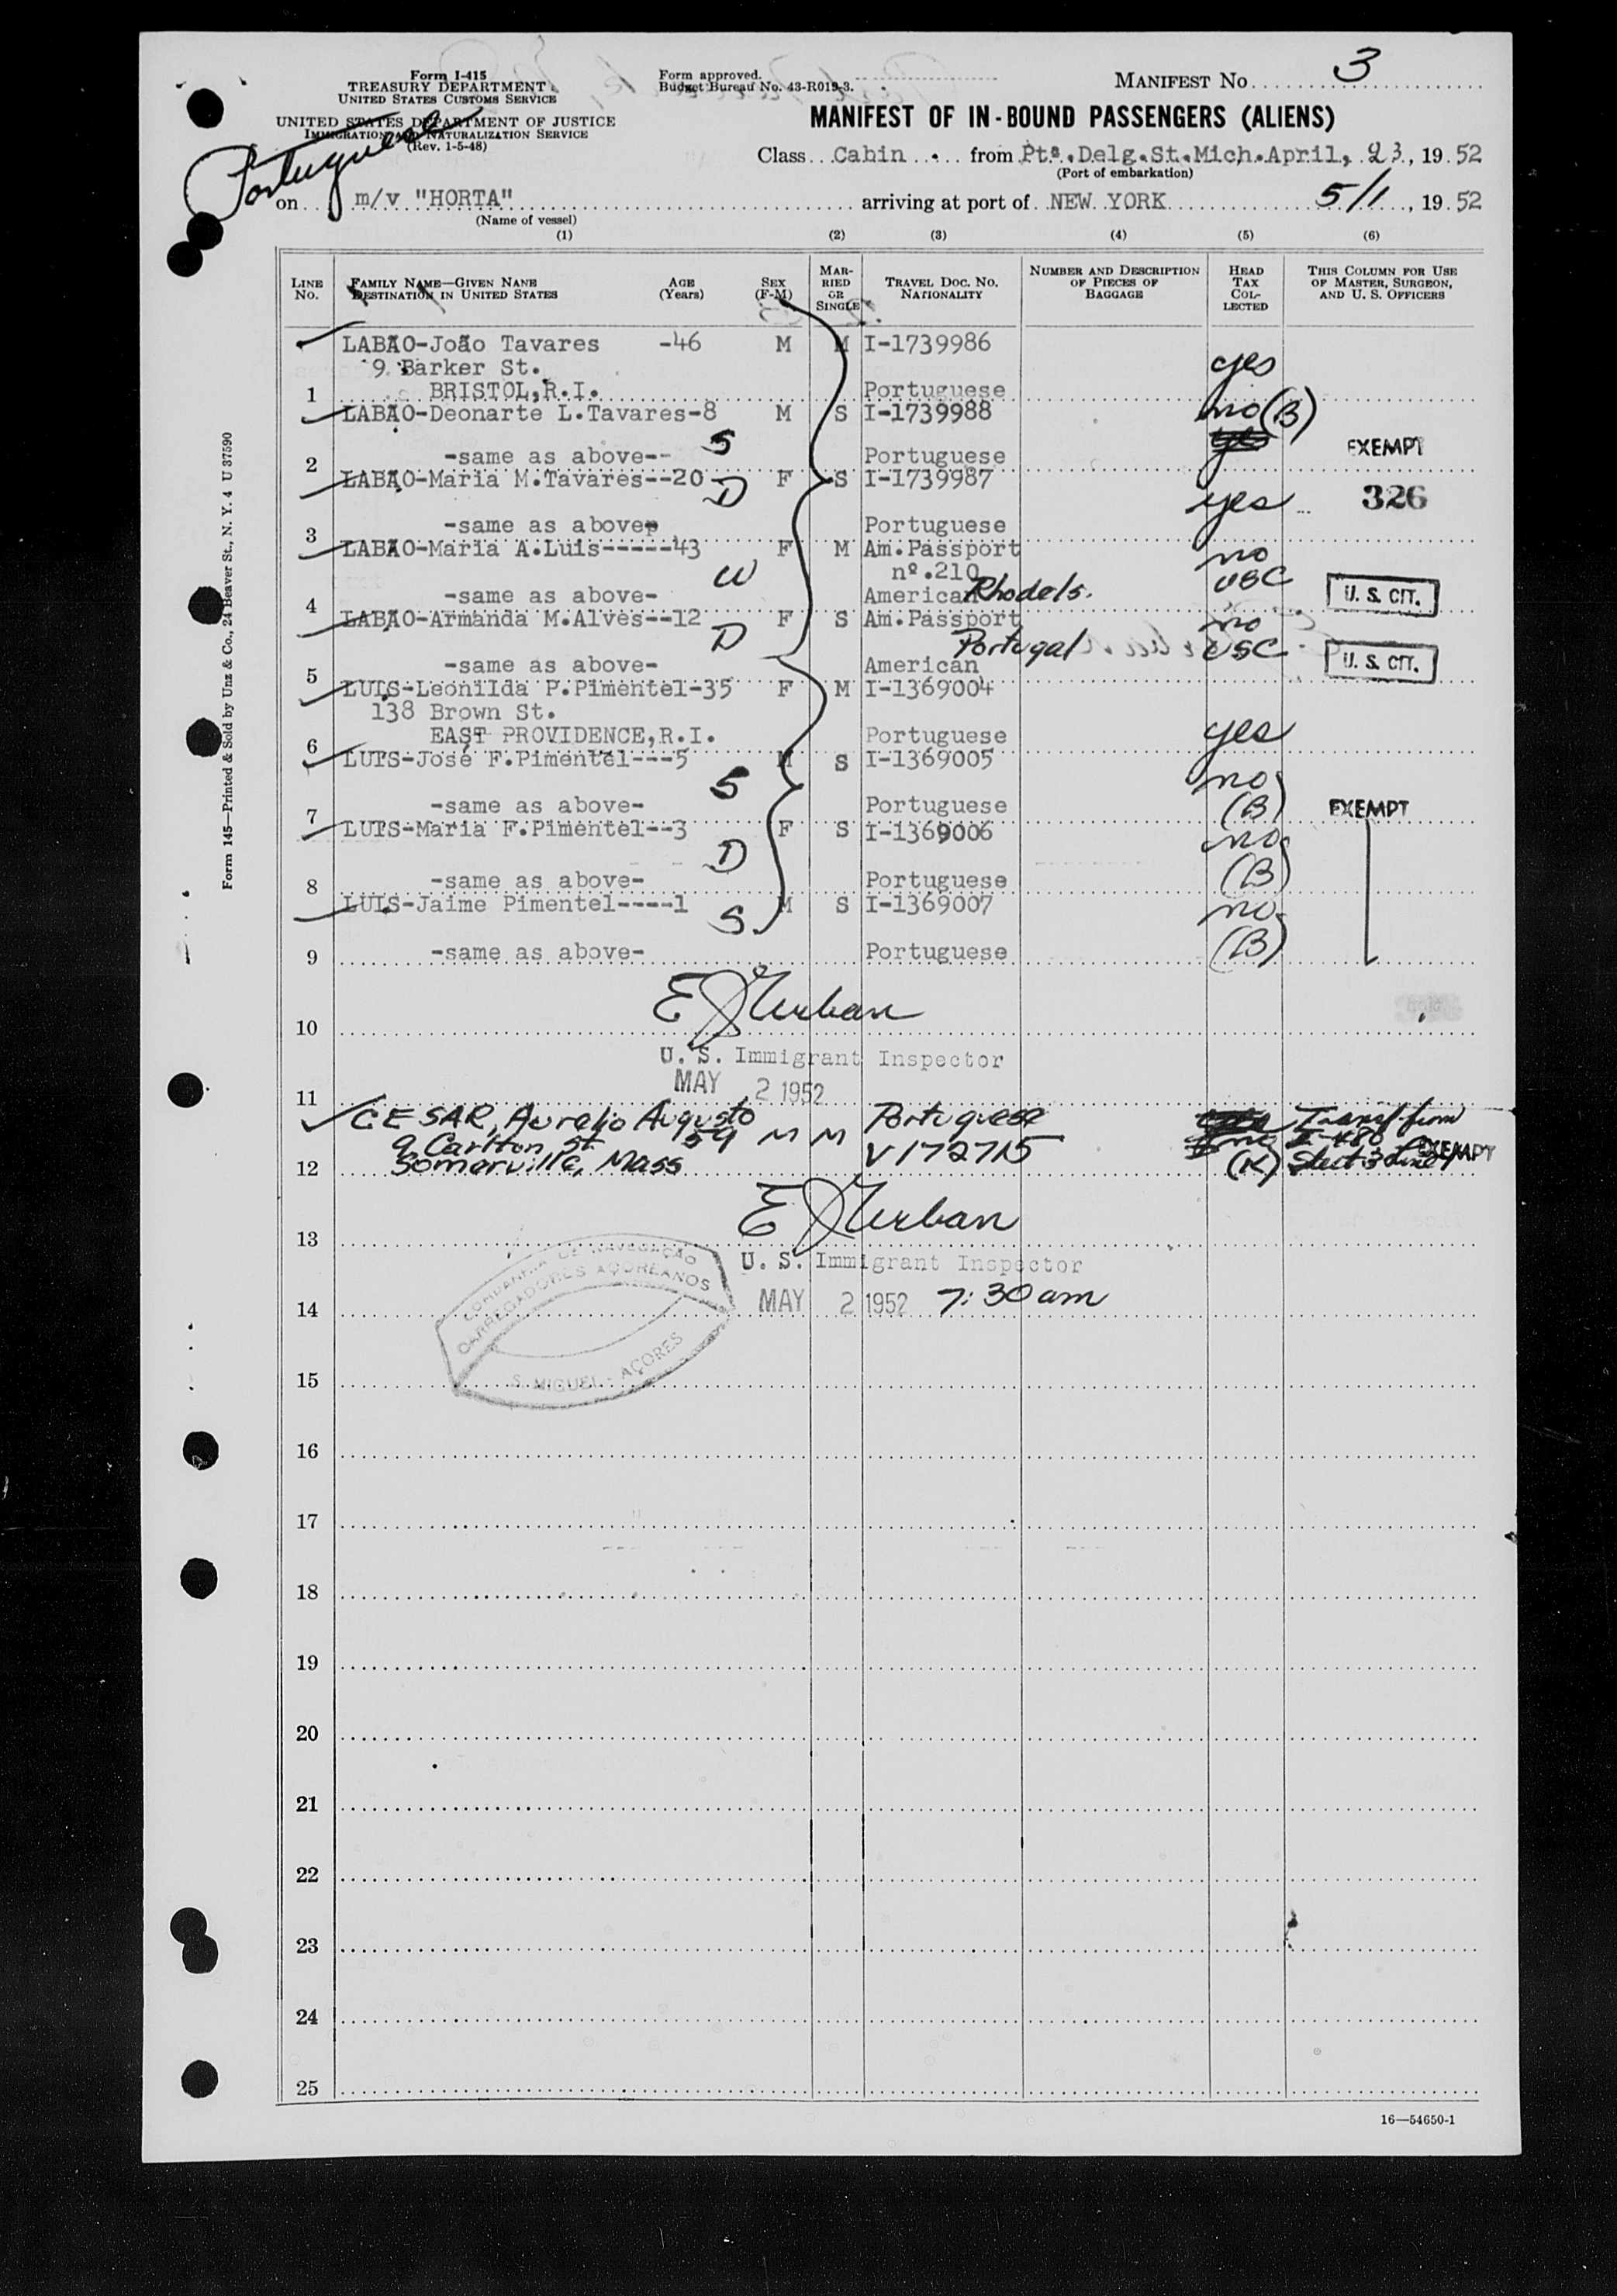 Form I-415
TREASURY DEPARTMENT
UNITED STATES CUSTOMS SERVICE
UNITED STATES DEPARTMENT OF JUSTICE
IMMIGRATION AND NATURALIZATION SERVICE
(Rev. 1-5-48)
Portuguese
Form approved.
Budget Bureau No. 43-R019-3.
MANIFEST NO. 3
MANIFEST OF IN-BOUND PASSENGERS (ALIENS)
Class Cabin from Ptª.Delg.St.Mich.April, 23, 1952
(Port of embarkation)
on m/v "HORTA" arriving at port of NEW YORK 5/1, 1952
(Name of vessel)
(1) (2) (3) (4) (5) (6)
LINE NO.
FAMILY NAME—GIVEN NAME
DESTINATION IN UNITED STATES
AGE (Years)
SEX (F-M)
MARRIED OR SINGLE
TRAVEL DOC. NO. NATIONALITY
NUMBER AND DESCRIPTION OF PIECES OF BAGGAGE
HEAD TAX COLLECTED
THIS COLUMN FOR USE OF MASTER, SURGEON, AND U. S. OFFICERS
LABÃO-João Tavares -46 M M I-1739986
9 Barker St. yes
1 BRISTOL,R.I. Portuguese
LABÃO-Deonarte L.Tavares-8 M S I-1739988 no (B)
S yes EXEMPT
2 -same as above-- Portuguese
LABÃO-Maria M.Tavares--20 F S I-1739987
D yes 326
3 -same as above- Portuguese
LABÃO-Maria A.Luis-----43 F M Am.Passport no
W nº.210 USC
4 -same as above- American Rhode Is. U. S. CIT.
LABÃO-Armanda M.Alves--12 F S Am.Passport no
D Portugal USC
5 -same as above- American U. S. CIT.
LUIS-Leonilda P.Pimentel-35 F M I-1369004
138 Brown St.
6 EAST PROVIDENCE,R.I. Portuguese yes
LUIS-José F.Pimentel---5 M S I-1369005
S no
7 -same as above- Portuguese (B) EXEMPT
LUIS-Maria F.Pimentel--3 F S I-1369006 no
D
8 -same as above- Portuguese (B)
LUIS-Jaime Pimentel----1 M S I-1369007 no
S
9 -same as above- Portuguese (B)
E J Urban
10
U. S. Immigrant Inspector
MAY 2 1952
11
CESAR, Aurelio Augusto Portuguese Transf from
9 Carlton St. 59 M M V172715 no I-480
12 Somerville, Mass (K) Sheet 3 Line 1 EXEMPT
E J Urban
13
U. S. Immigrant Inspector
MAY 2 1952 7:30am
14
COMPANHIA DE NAVEGAÇÃO
CARREGADORES AÇOREANOS
S. MIGUEL - AÇORES
15
16
17
18
19
20
21
22
23
24
25
16—54650-1
Form 145—Printed & Sold by Unz & Co., 24 Beaver St., N. Y. 4 U 37590